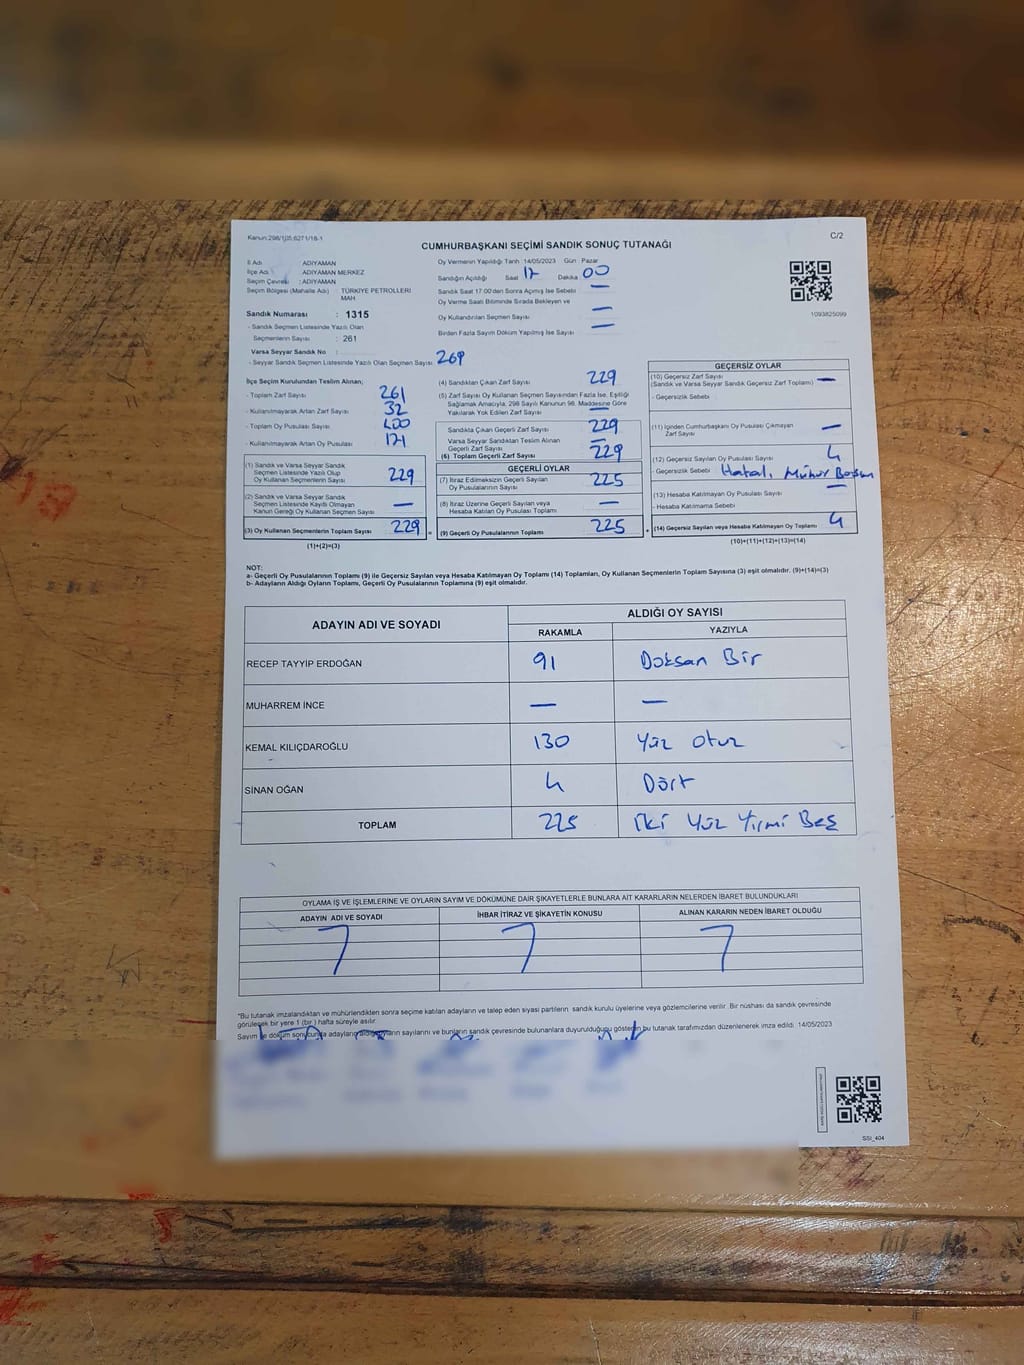 Kanun:298/105;6271/18-1
C/2
CUMHURBAŞKANI SEÇİMİ SANDIK SONUÇ TUTANAĞI
İl Adı : ADIYAMAN
İlçe Adı : ADIYAMAN MERKEZ
Seçim Çevresi : ADIYAMAN
Seçim Bölgesi (Mahalle Adı) : TÜRKİYE PETROLLERİ MAH
Sandık Numarası : 1315
- Sandık Seçmen Listesinde Yazılı Olan
Seçmenlerin Sayısı : 261
Varsa Seyyar Sandık No :
- Seyyar Sandık Seçmen Listesinde Yazılı Olan Seçmen Sayısı
Oy Vermenin Yapıldığı Tarih :14/05/2023 Gün : Pazar
Sandığın Açıldığı Saat 17 Dakika 00
Sandık Saat 17:00'den Sonra Açımış İse Sebebi —
Oy Verme Saati Bitiminde Sırada Bekleyen ve
Oy Kullandırılan Seçmen Sayısı —
Birden Fazla Sayım Döküm Yapılmış İse Sayısı —
1093825099
İlçe Seçim Kurulundan Teslim Alınan;
- Toplam Zarf Sayısı 261
- Kullanılmayarak Artan Zarf Sayısı 32
- Toplam Oy Pusulası Sayısı 400
- Kullanılmayarak Artan Oy Pusulası 171
(1) Sandık ve Varsa Seyyar Sandık
Seçmen Listesinde Yazılı Olup
Oy Kullanan Seçmenlerin Sayısı 229
(2) Sandık ve Varsa Seyyar Sandık
Seçmen Listesinde Kayıtlı Olmayan
Kanun Gereği Oy Kullanan Seçmen Sayısı —
(3) Oy Kullanan Seçmenlerin Toplam Sayısı 229
(1)+(2)=(3)
(4) Sandıktan Çıkan Zarf Sayısı 229
(5) Zarf Sayısı Oy Kullanan Seçmen Sayısından Fazla İse, Eşitliği
Sağlamak Amacıyla, 298 Sayılı Kanunun 98. Maddesine Göre
Yakılarak Yok Edilen Zarf Sayısı —
Sandıkta Çıkan Geçerli Zarf Sayısı 229
Varsa Seyyar Sandıktan Teslim Alınan
Geçerli Zarf Sayısı —
(6) Toplam Geçerli Zarf Sayısı 229
GEÇERLİ OYLAR
(7) İtiraz Edilmeksizin Geçerli Sayılan
Oy Pusulalarının Sayısı 225
(8) İtiraz Üzerine Geçerli Sayılan veya
Hesaba Katılan Oy Pusulası Toplamı —
(9) Geçerli Oy Pusulalarının Toplamı 225
GEÇERSİZ OYLAR
(10) Geçersiz Zarf Sayısı
(Sandık ve Varsa Seyyar Sandık Geçersiz Zarf Toplamı) —
- Geçersizlik Sebebi
(11) İçinden Cumhurbaşkanı Oy Pusulası Çıkmayan
Zarf Sayısı —
(12) Geçersiz Sayılan Oy Pusulası Sayısı 4
- Geçersizlik Sebebi Hatalı Mühür
(13) Hesaba Katılmayan Oy Pusulası Sayısı —
- Hesaba Katılmama Sebebi
(14) Geçersiz Sayılan veya Hesaba Katılmayan Oy Toplamı 4
(10)+(11)+(12)+(13)=(14)
NOT:
a- Geçerli Oy Pusulalarının Toplamı (9) ile Geçersiz Sayılan veya Hesaba Katılmayan Oy Toplamı (14) Toplamları, Oy Kullanan Seçmenlerin Toplam Sayısına (3) eşit olmalıdır. (9)+(14)=(3)
b- Adayların Aldığı Oyların Toplamı, Geçerli Oy Pusulalarının Toplamına (9) eşit olmalıdır.
ADAYIN ADI VE SOYADI
ALDIĞI OY SAYISI
RAKAMLA YAZIYLA
RECEP TAYYİP ERDOĞAN 91 Doksan Bir
MUHARREM İNCE — —
KEMAL KILIÇDAROĞLU 130 Yüz Otuz
SİNAN OĞAN 4 Dört
TOPLAM 225 İki Yüz Yirmi Beş
OYLAMA İŞ VE İŞLEMLERİNE VE OYLARIN SAYIM VE DÖKÜMÜNE DAİR ŞİKAYETLERLE BUNLARA AİT KARARLARIN NELERDEN İBARET BULUNDUKLARI
ADAYIN ADI VE SOYADI İHBAR İTİRAZ VE ŞİKAYETİN KONUSU ALINAN KARARIN NEDEN İBARET OLDUĞU
*Bu tutanak imzalandıktan ve mühürlendikten sonra seçime katılan adayların ve talep eden siyasi partilerin sandık kurulu üyelerine veya gözlemcilerine verilir .Bir nüshası da sandık çevresinde
görülecek bir yere 1 (bir ) hafta süreyle asılır.
Sayım ve döküm sonucunda adayların aldığı oyların sayılarını ve bunların sandık çevresinde bulunanlara duyurulduğunu gösteren bu tutanak tarafımızdan düzenlenerek imza edildi. 14/05/2023
SSİ_404